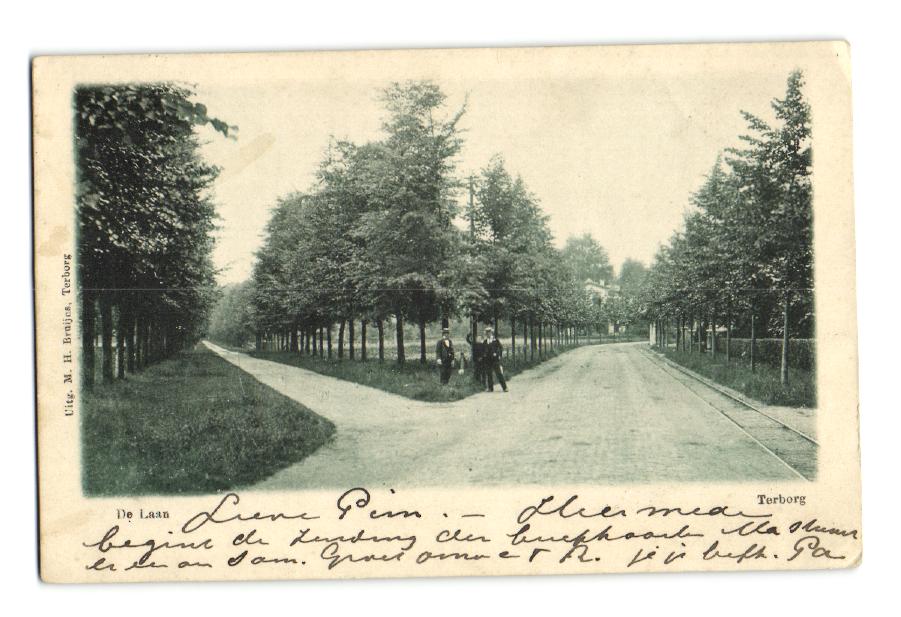 Uitg. M. H. Bruijns, Terborg
De Laan
Terborg
Lieve Pim. — Hiermede
begint de zending der briefkaarten
er een aan Sam. Groet oma e t R. je je heft. Pa